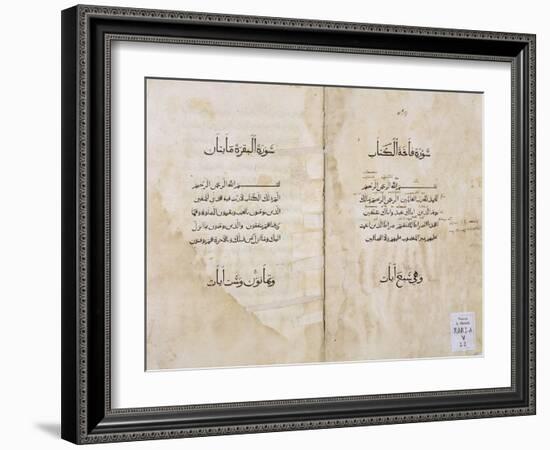 سورة فاتحة الكتاب
بسم الله الرحمن الرحيم
الحمد لله رب العالمين الرحمن الرحيم ملك
يوم الدين اياك نعبد واياك نستعين
اهدنا الصراط المستقيم صراط الذين انعمت
عليهم غير المغضوب عليهم ولا الضالين
وهي سبع ايات
سورة البقرة مايتان
بسم الله الرحمن الرحيم
الم ذلك الكتاب لا ريب فيه هدى للمتقين
الذين يومنون بالغيب ويقيمون الصلوة ومما
رزقناهم ينفقون والذين يومنون بما انزل
اليك وما انزل من قبلك وبالاخرة هم يوقنون
وثمانون وست ايات
RARI A.
V
22